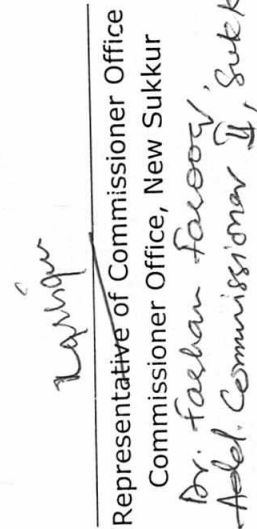 Representative of Commissioner Office
Commissioner Office, New Sukkur
Dr. Farhan Farooq,
Add. Commissioner II, Sukk